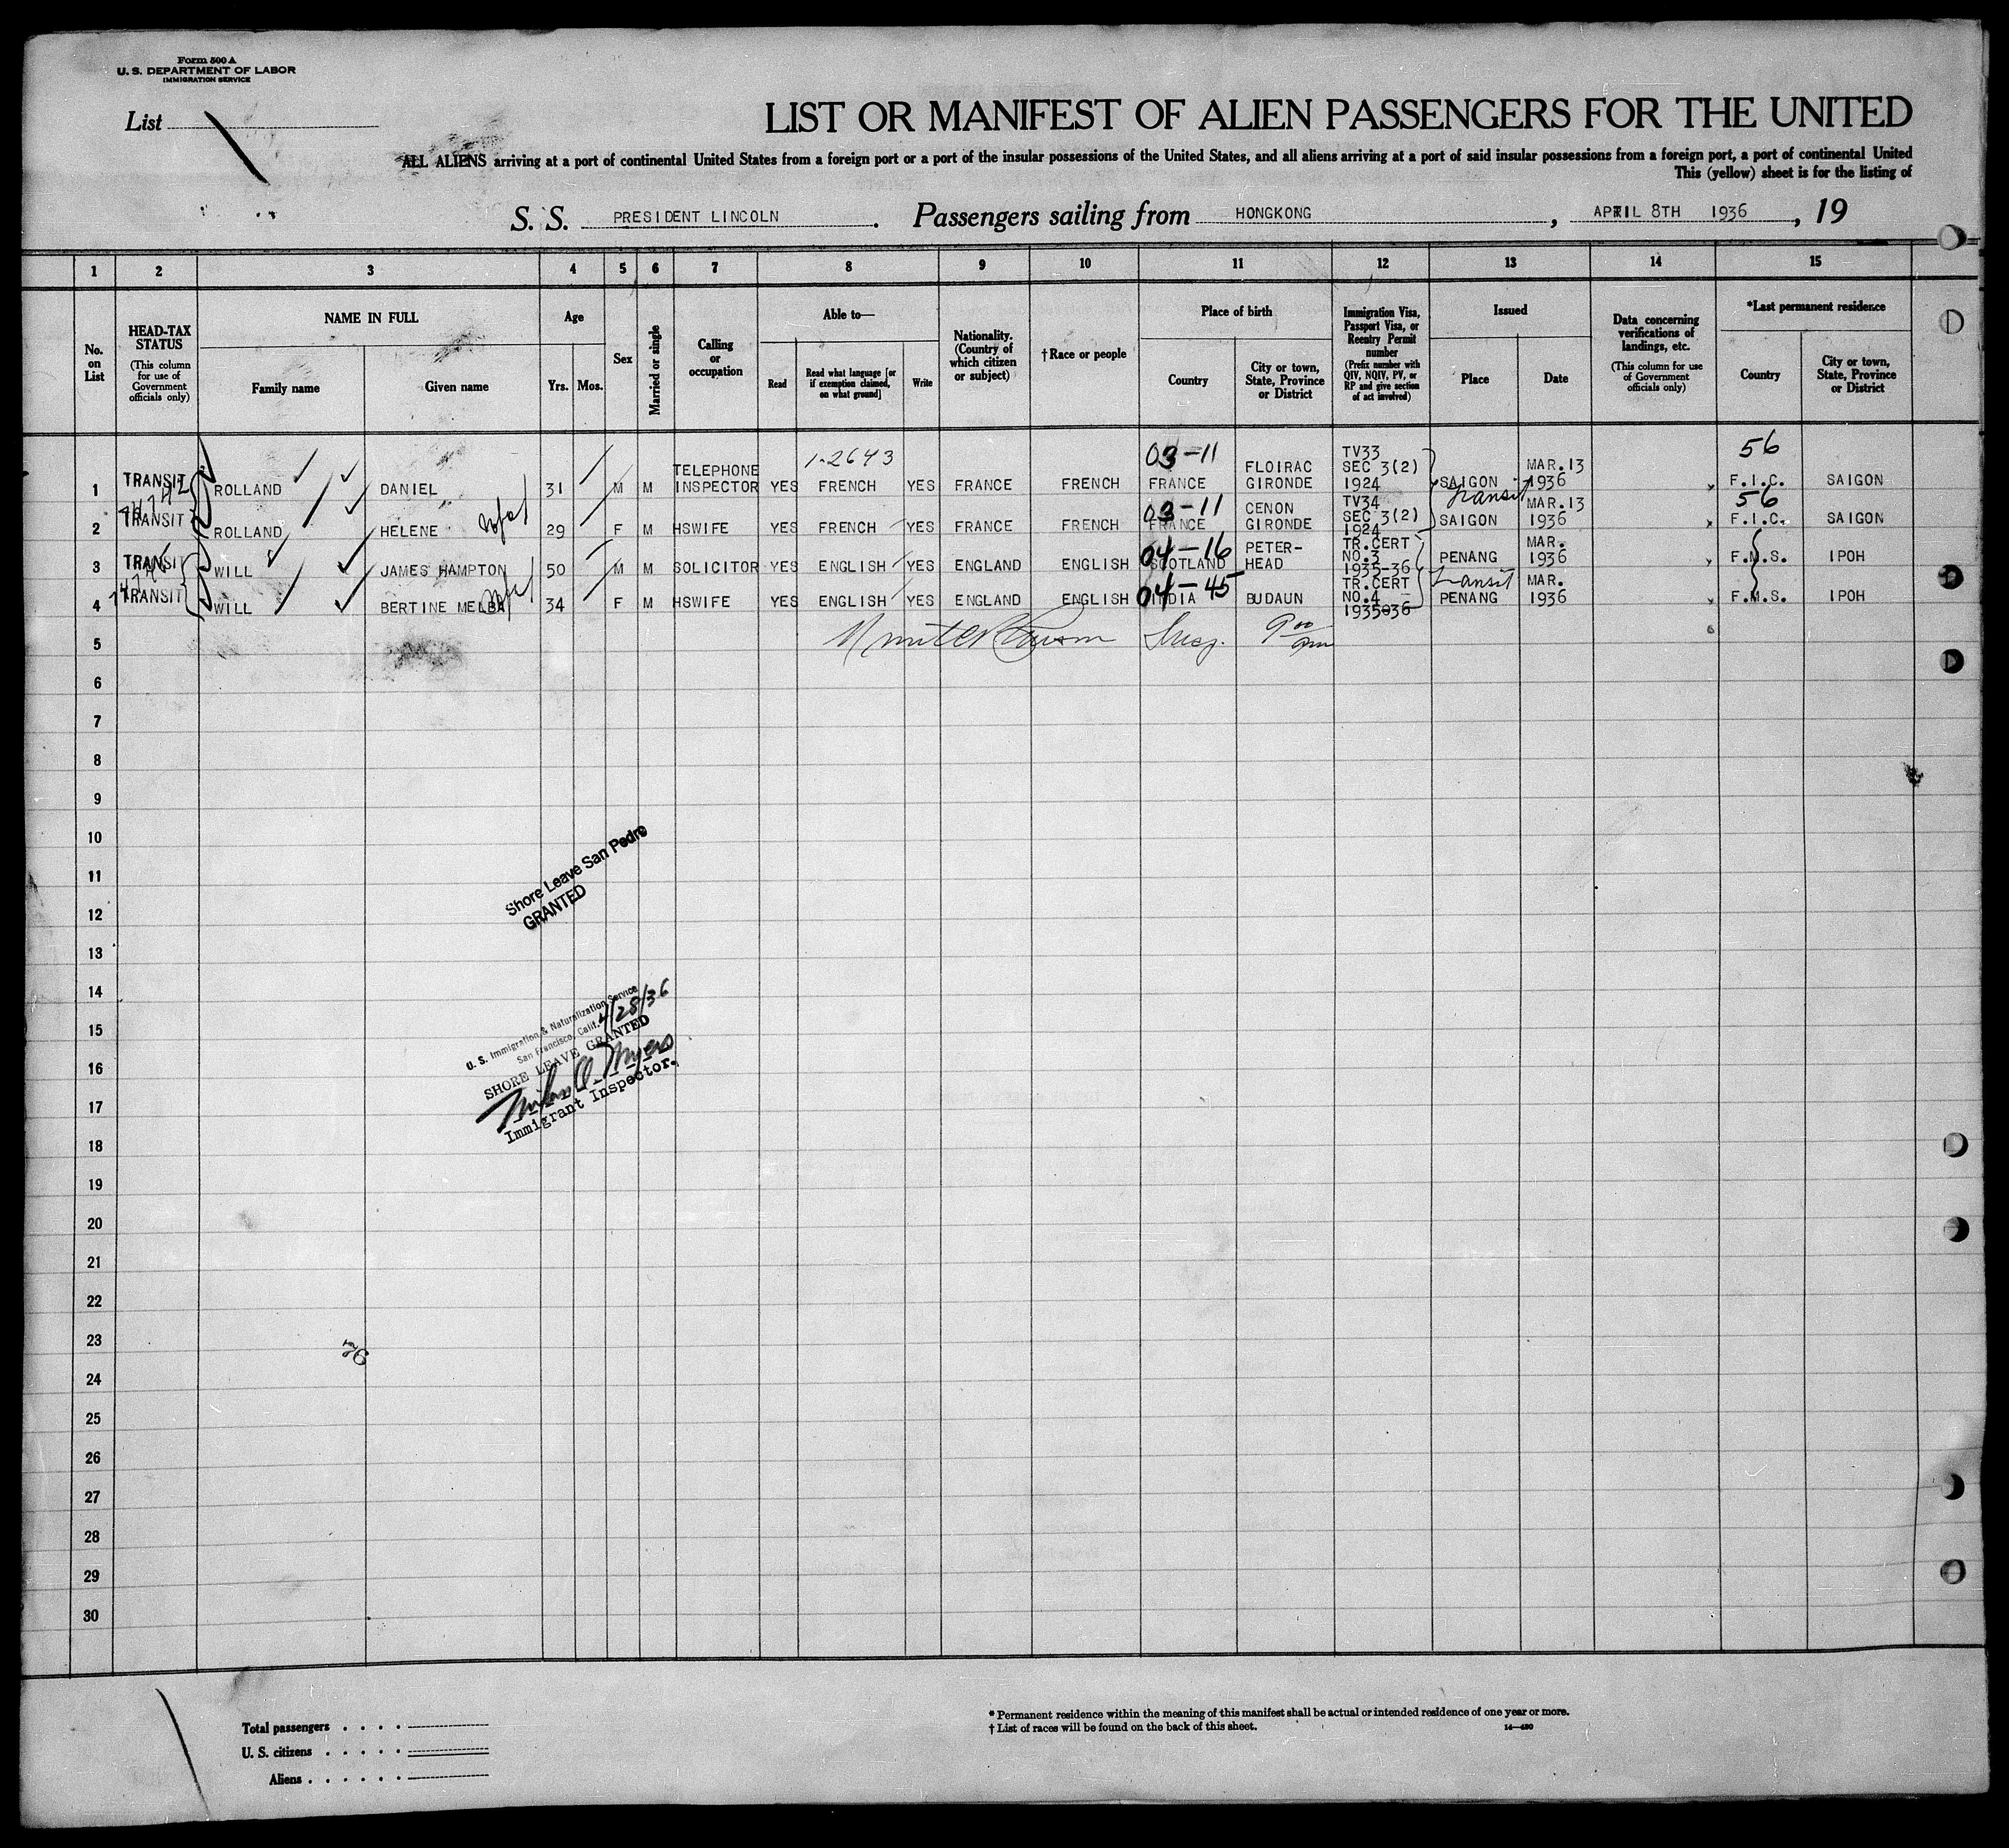 Form 500 A
U. S. DEPARTMENT OF LABOR
IMMIGRATION SERVICE
List
LIST OR MANIFEST OF ALIEN PASSENGERS FOR THE UNITED
ALL ALIENS arriving at a port of continental United States from a foreign port or a port of the insular possessions of the United States, and all aliens arriving at a port of said insular possessions from a foreign port, a port of continental United
This (yellow) sheet is for the listing of
S. S. PRESIDENT LINCOLN. Passengers sailing from HONGKONG, APRIL 8TH 1936, 19
1 2 3 4 5 6 7 8 9 10 11 12 13 14 15
No. on List
HEAD-TAX STATUS
(This column for use of Government officials only)
NAME IN FULL
Family name
Given name
Age
Yrs. Mos.
Sex
Married or single
Calling or occupation
Able to—
Read
Read what language [or if exemption claimed, on what ground]
Write
Nationality. (Country of which citizen or subject)
†Race or people
Place of birth
Country
City or town, State, Province or District
Immigration Visa, Passport Visa, or Reentry Permit number
(Prefix number with QIV, NQIV, PV, or RP and give section of act involved)
Issued
Place
Date
Data concerning verifications of landings, etc.
(This column for use of Government officials only)
*Last permanent residence
Country
City or town, State, Province or District
1-2643 03-11 56
1 TRANSIT ROLLAND DANIEL 31 M M TELEPHONE INSPECTOR YES FRENCH YES FRANCE FRENCH FRANCE FLOIRAC GIRONDE TV33 SEC 3(2) 1924 SAIGON MAR.13 1936 F.I.C. SAIGON
03-11 Transit 56
2 TRANSIT ROLLAND HELENE 29 F M HSWIFE YES FRENCH YES FRANCE FRENCH FRANCE CENON GIRONDE TV34 SEC 3(2) 1924 SAIGON MAR.13 1936 F.I.C. SAIGON
04-16
3 TRANSIT WILL JAMES HAMPTON 50 M M SOLICITOR YES ENGLISH YES ENGLAND ENGLISH SCOTLAND PETER-HEAD TR.CERT NO.3 1935-36 PENANG MAR. 1936 F.M.S. IPOH
04-45 Transit
4 TRANSIT WILL BERTINE MELBA 34 F M HSWIFE YES ENGLISH YES ENGLAND ENGLISH INDIA BUDAUN TR.CERT NO.4 1935-36 PENANG MAR. 1936 F.M.S. IPOH
5 Insp. 9 00 pm
6
7
8
9
10
11
12
13
14
15
16
17
18
19
20
21
22
23
24
25
26
27
28
29
30
Shore Leave San Pedro
GRANTED
U. S. Immigration & Naturalization Service
San Francisco, Calif. 4/28/36
SHORE LEAVE GRANTED
Myers
Immigrant Inspector.
Total passengers
U. S. citizens
Aliens
* Permanent residence within the meaning of this manifest shall be actual or intended residence of one year or more.
† List of races will be found on the back of this sheet.
14—430